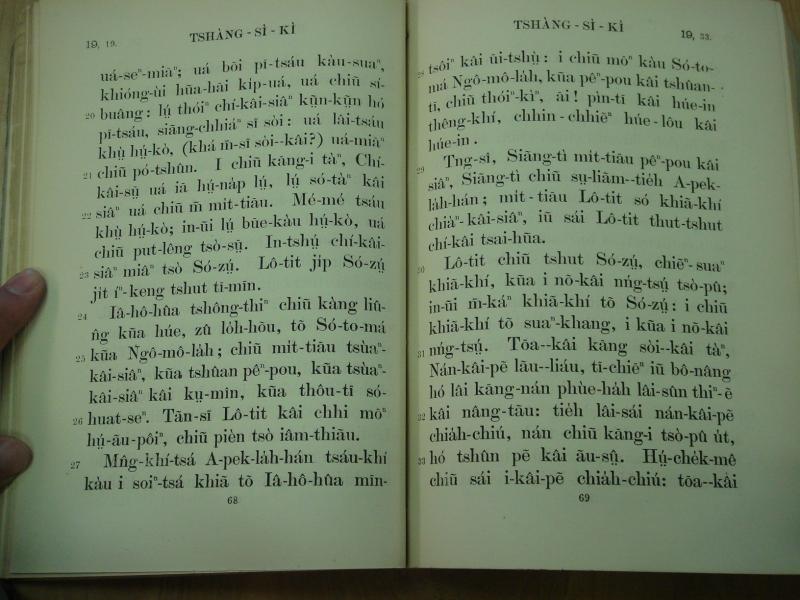 19, 19.
TSHÀNG - SÌ - KÌ
uá-seⁿ-miāⁿ; uá bōi pī-tsáu kàu-suaⁿ,
khióng-ùi hūa-hāi kịp-uá, uá chiū sí-
20 buâng: lṳ́ thóiⁿ chí-kâi-siâⁿ kṳ̄n-kṳ̄n hó
pī-tsáu, siāng-chhiáⁿ sĭ sòi: uá lâi-tsáu
khṳ̀ hṳ́-kò, (khá m̄-sĭ sòi--kâi?) uá-miāⁿ
21 chiū pó-tshûn. I chiū kāng-i tàⁿ, Chí-
kâi-sṳ̄ uá iā hṳ́-nap lṳ́, lṳ́ só-tàⁿ kâi
22 siâⁿ uá chiū m̄ mi̍t-tiāu. Mé-mé tsáu
khṳ̀ hṳ́-kò; in-ūi lṳ́ būe-kàu hṳ́-kò, uá
chiū put-lêng tsò-sṳ̄. In-tshṳ́ chí-kâi-
23 siâⁿ miâⁿ tsò Só-zṳ́. Lô-tit ji̍p Só-zṳ́
ji̍t íⁿ-keng tshut tī-mīn.
24 Iâ-hô-hûa tshông-thiⁿ chiū kàng liû-
n̂g kūa húe, zû lo̍h-hōu, tõ Só-to-má
25 kūa Ngô-mô-la̍h; chiū mi̍t-tiāu tsùaⁿ-
kâi-siâⁿ, kūa tshûan pêⁿ-pou, kūa tsùaⁿ-
kâi-siâⁿ kâi kṳ-mîn, kūa thôu-tī só-
26 huat-seⁿ. Tān-sĭ Lô-tit kâi chhi mōⁿ
hṳ́-āu-pôiⁿ, chiū pièn tsò iâm-thiāu.
27 Mn̂g-khí-tsá A-pek-la̍h-hán tsáu-khí
kàu i soiⁿ-tsá khiā tõ Iâ-hô-hûa mīn-
68
TSHÀNG - SÌ - KÌ
19, 33.
28 tsôiⁿ kâi ūi-tshṳ̀: i chiū mōⁿ kàu Só-to-
má Ngô-mô-la̍h, kūa pêⁿ-pou kâi tshûan-
tī, chiū thóiⁿ-kìⁿ, āi! pìn-tī kâi húe-in
thêng-khí, chhin-chhiẽⁿ húe-lôu kâi
húe-in.
29 Tng-sî, Siāng-tì mi̍t-tiāu pêⁿ-pou kâi
siâⁿ, Siāng-tì chiū sṳ-liām--tie̍h A-pek-
la̍h-hán; mi̍t-tiāu Lô-tit só khiā-khí
chiàⁿ-kâi-siâⁿ, iū sái Lô-tit thut-tshut
chí-kâi tsai-hūa.
30 Lô-tit chiū tshut Só-zṳ́, chiẽⁿ-suaⁿ
khiā-khí, kūa i nō-kâi nńg-tsṳ́ tsò-pû;
in-ūi m̄-káⁿ khiā-khí tõ Só-zṳ́: i chiū
khiā-khí tõ suaⁿ-khang, i kūa i nō-kâi
31 nńg-tsṳ́. Tōa--kâi kāng sòi--kâi tàⁿ,
Nán-kâi-pẽ lãu--liáu, tī-chiẽⁿ iū bô-nâng
hó lâi kāng-nán phùe-ha̍h lâi-sûn thiⁿ-ẽ
32 kâi nâng-tāu: tie̍h lâi-sái nán-kâi-pẽ
chia̍h-chiú, nán chiū kāng-i tsò-pû u̍t,
33 hó tshûn pẽ kâi āu-sṳ̂. Hṳ́-che̍k-mê
chiū sái i-kâi-pẽ chia̍h-chiú: tōa--kâi
69